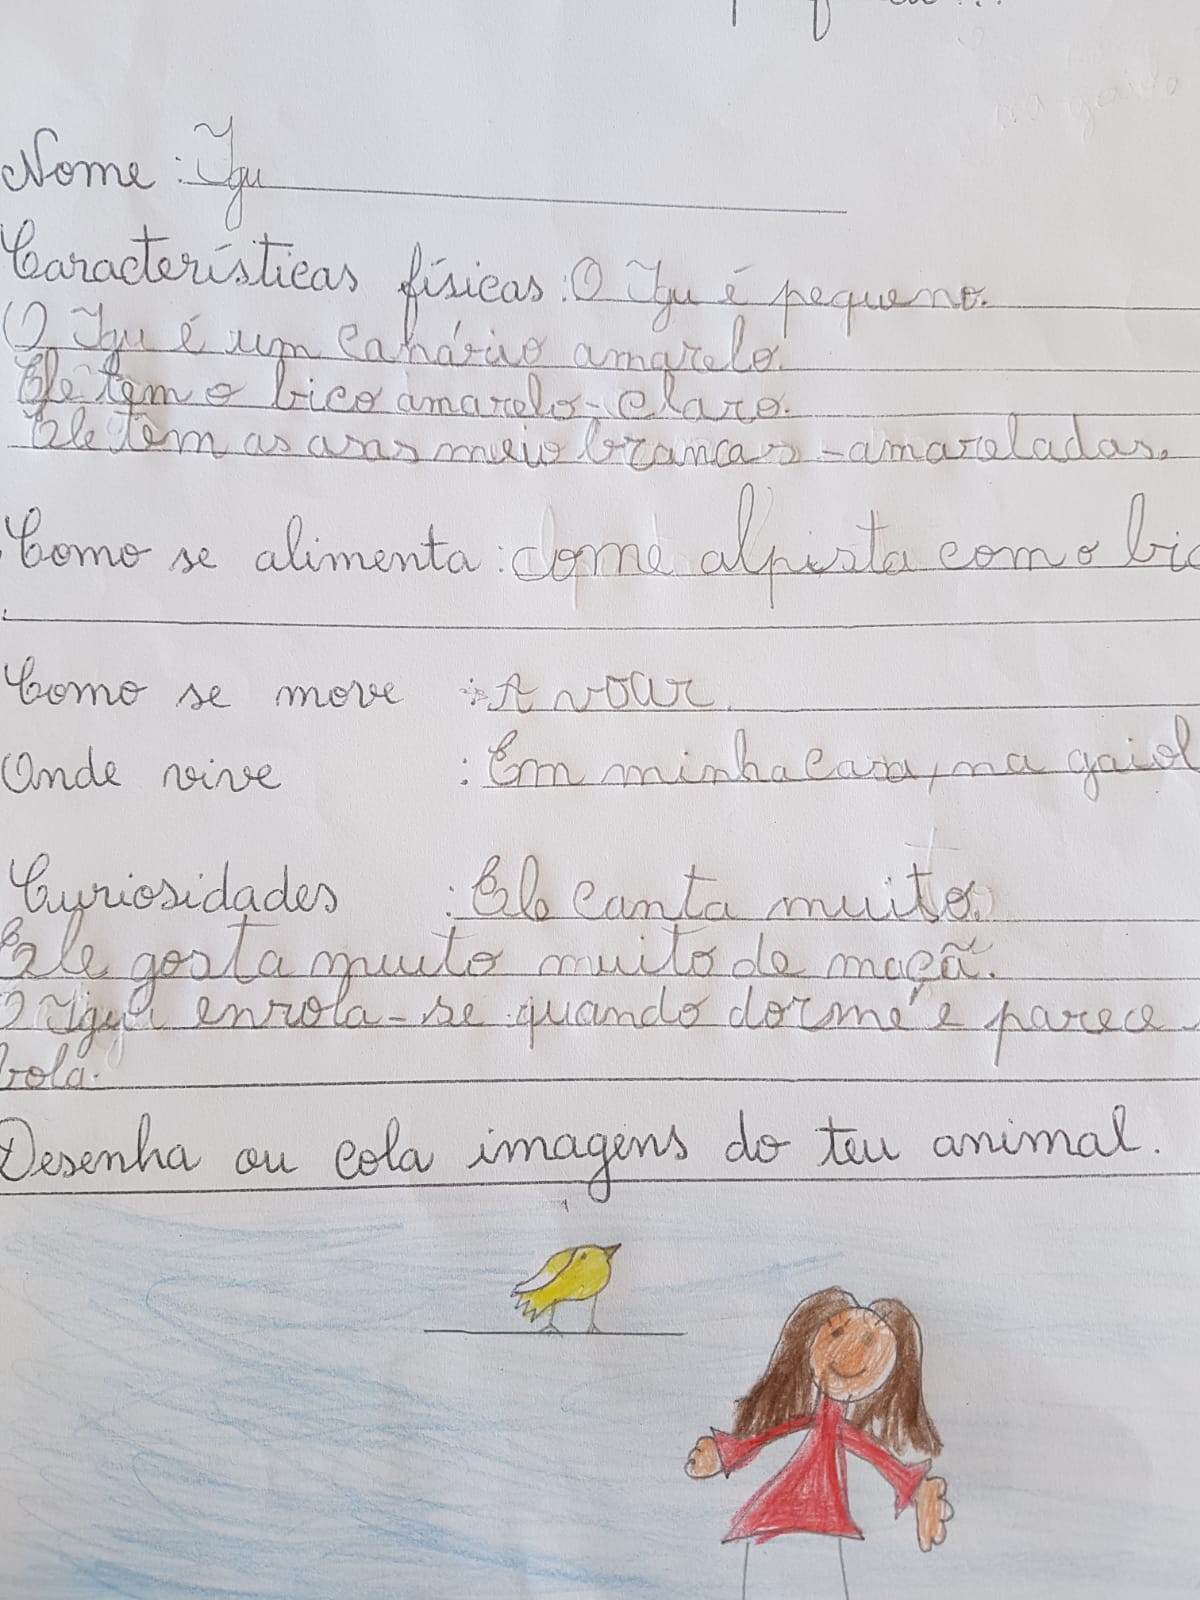 Nome : Igu
Características físicas : O Igu é pequeno.
O Igu é um canário amarelo.
Ele tem o bico amarelo-claro.
Ele tem as asas meio brancas-amareladas.
Como se alimenta : come alpista com o bic
Como se move : A voar.
Onde vive : Em minha casa, na gaiol
Curiosidades : Ele canta muito.
Ele gosta muito muito de maçã.
O Igu enrola-se quando dorme e parece
bola.
Desenha ou cola imagens do teu animal.